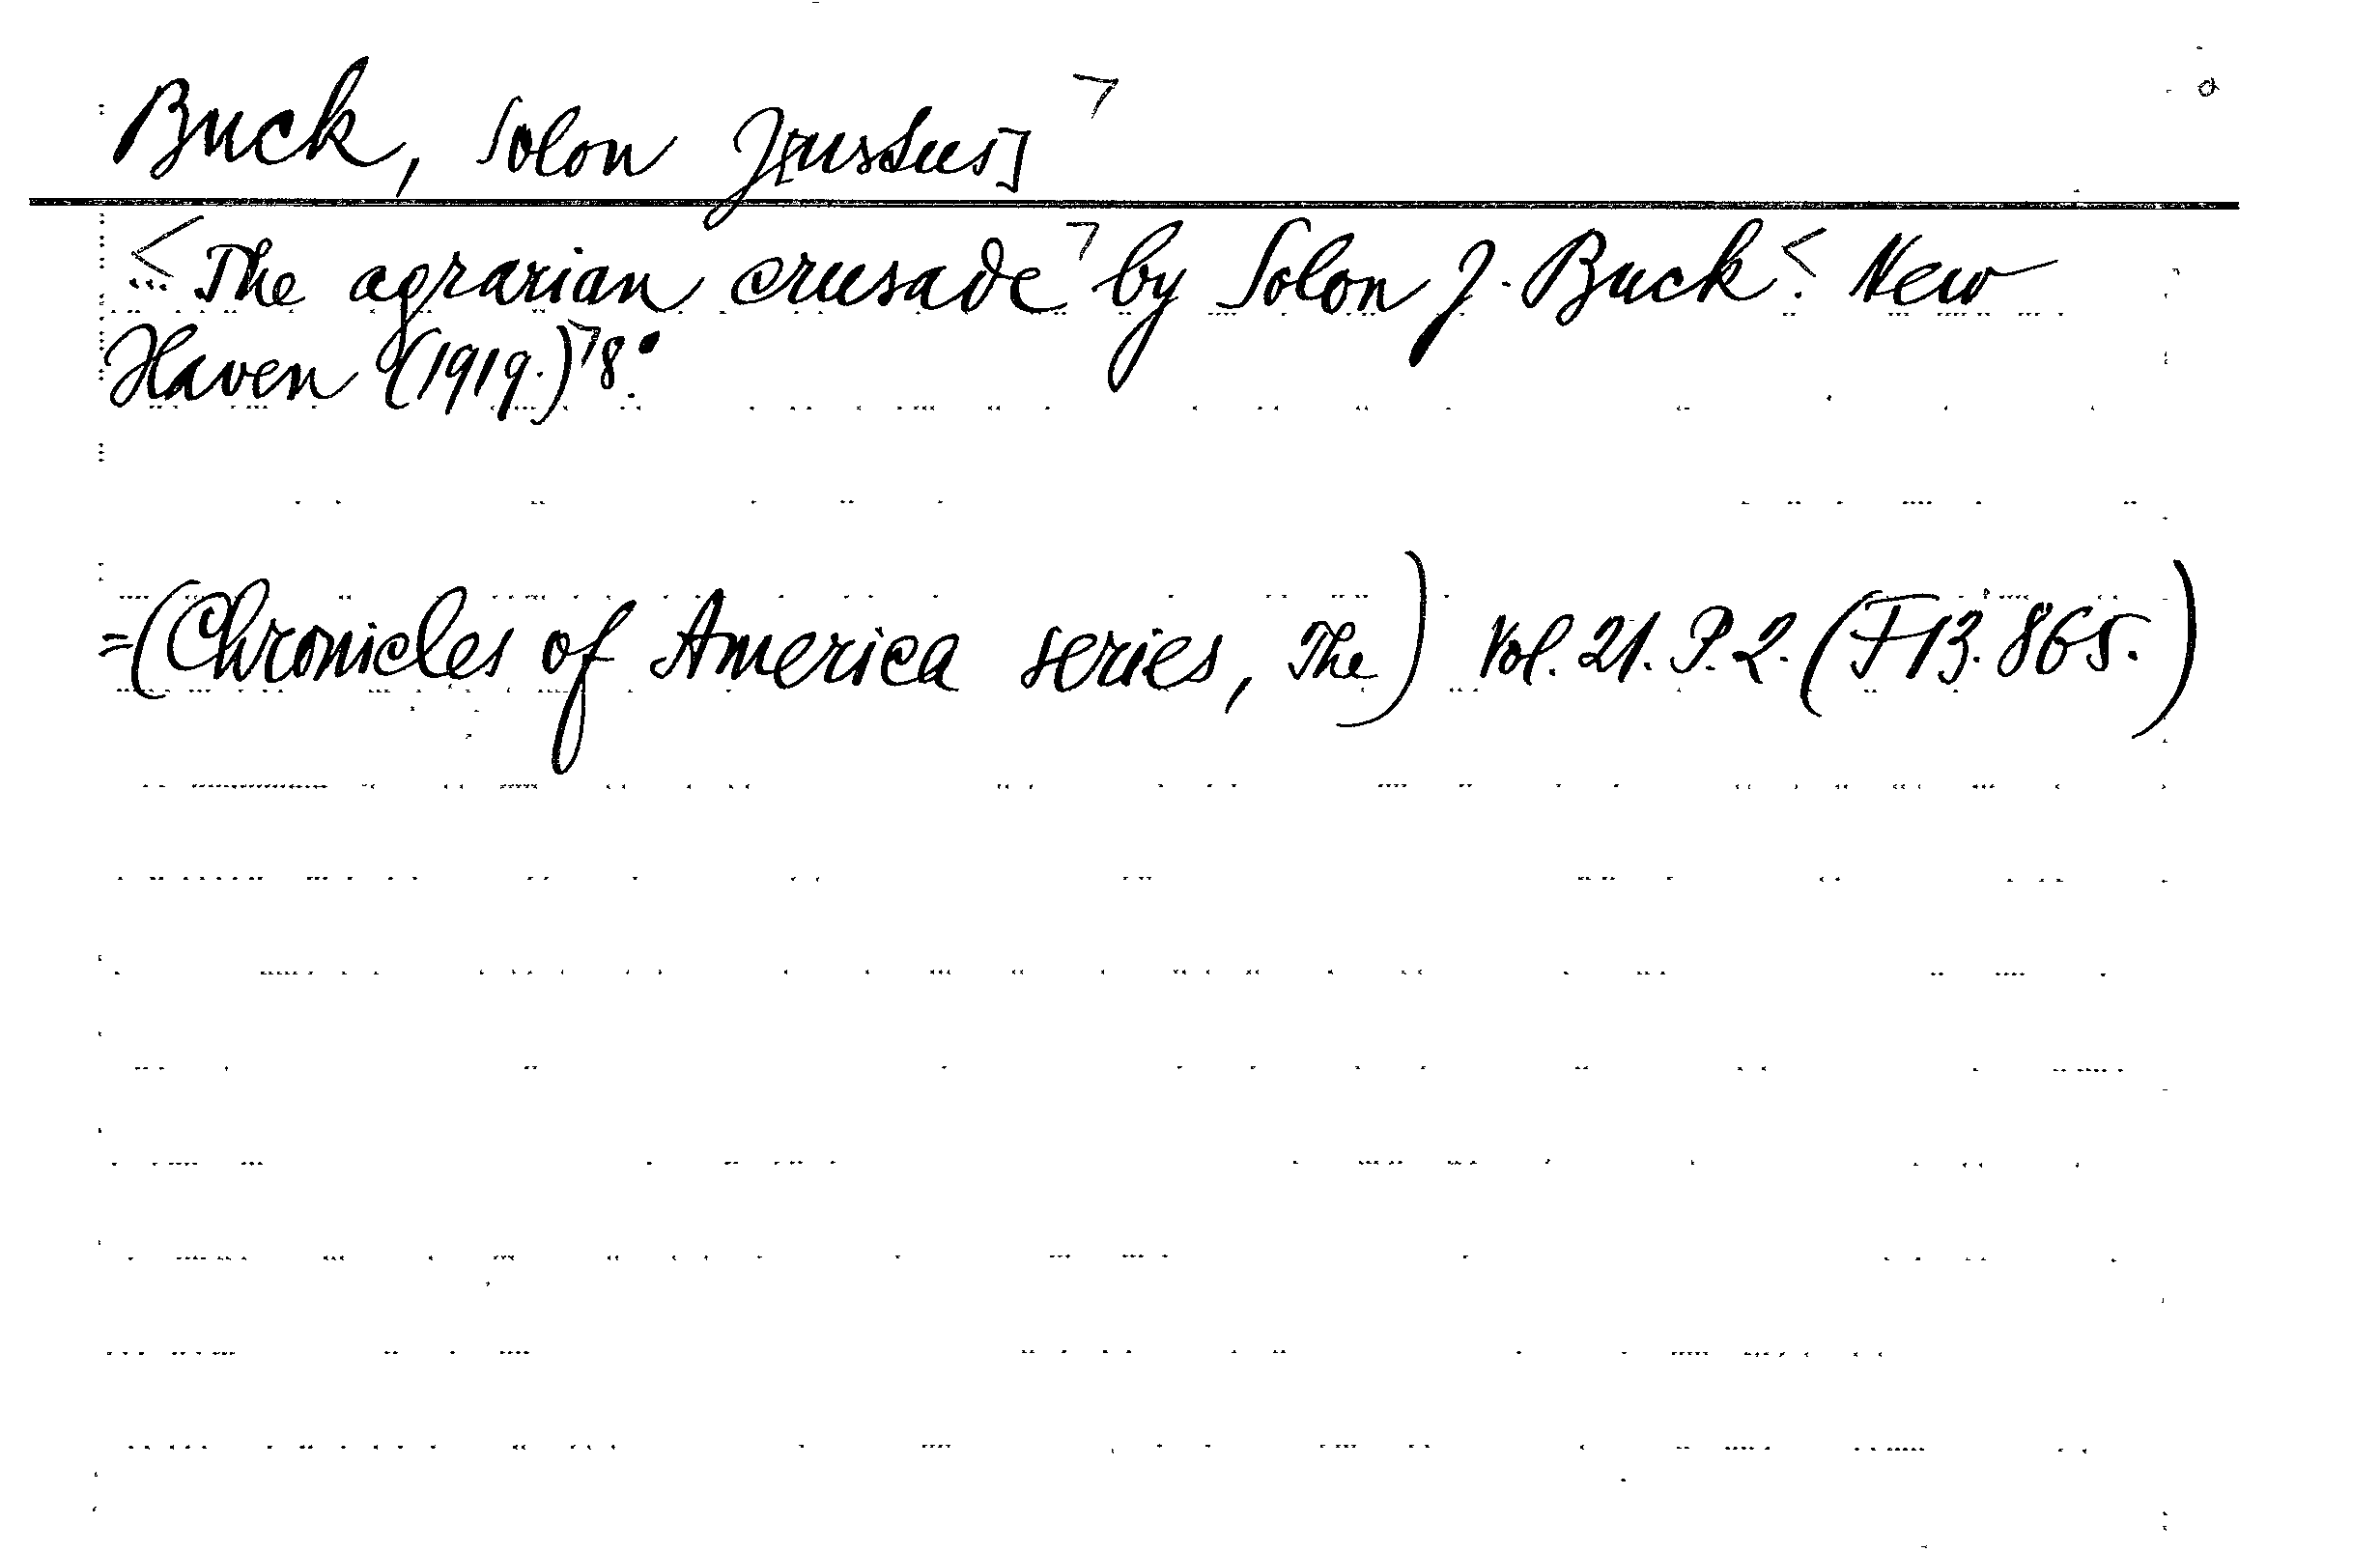 Buck, Solon J[ustus]
The agrarian crusade by Solon J. Buck. New
Haven (1919.) 8°.
=(Chronicles of America series, The) Vol. 21. P. 2. (F 13. 865.)